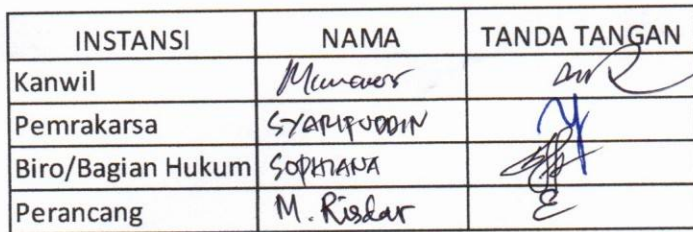 INSTANSI NAMA TANDA TANGAN
Kanwil
Pemrakarsa SYARIPUDDIN
Biro/Bagian Hukum SOPHIANA
Perancang M. Risdar